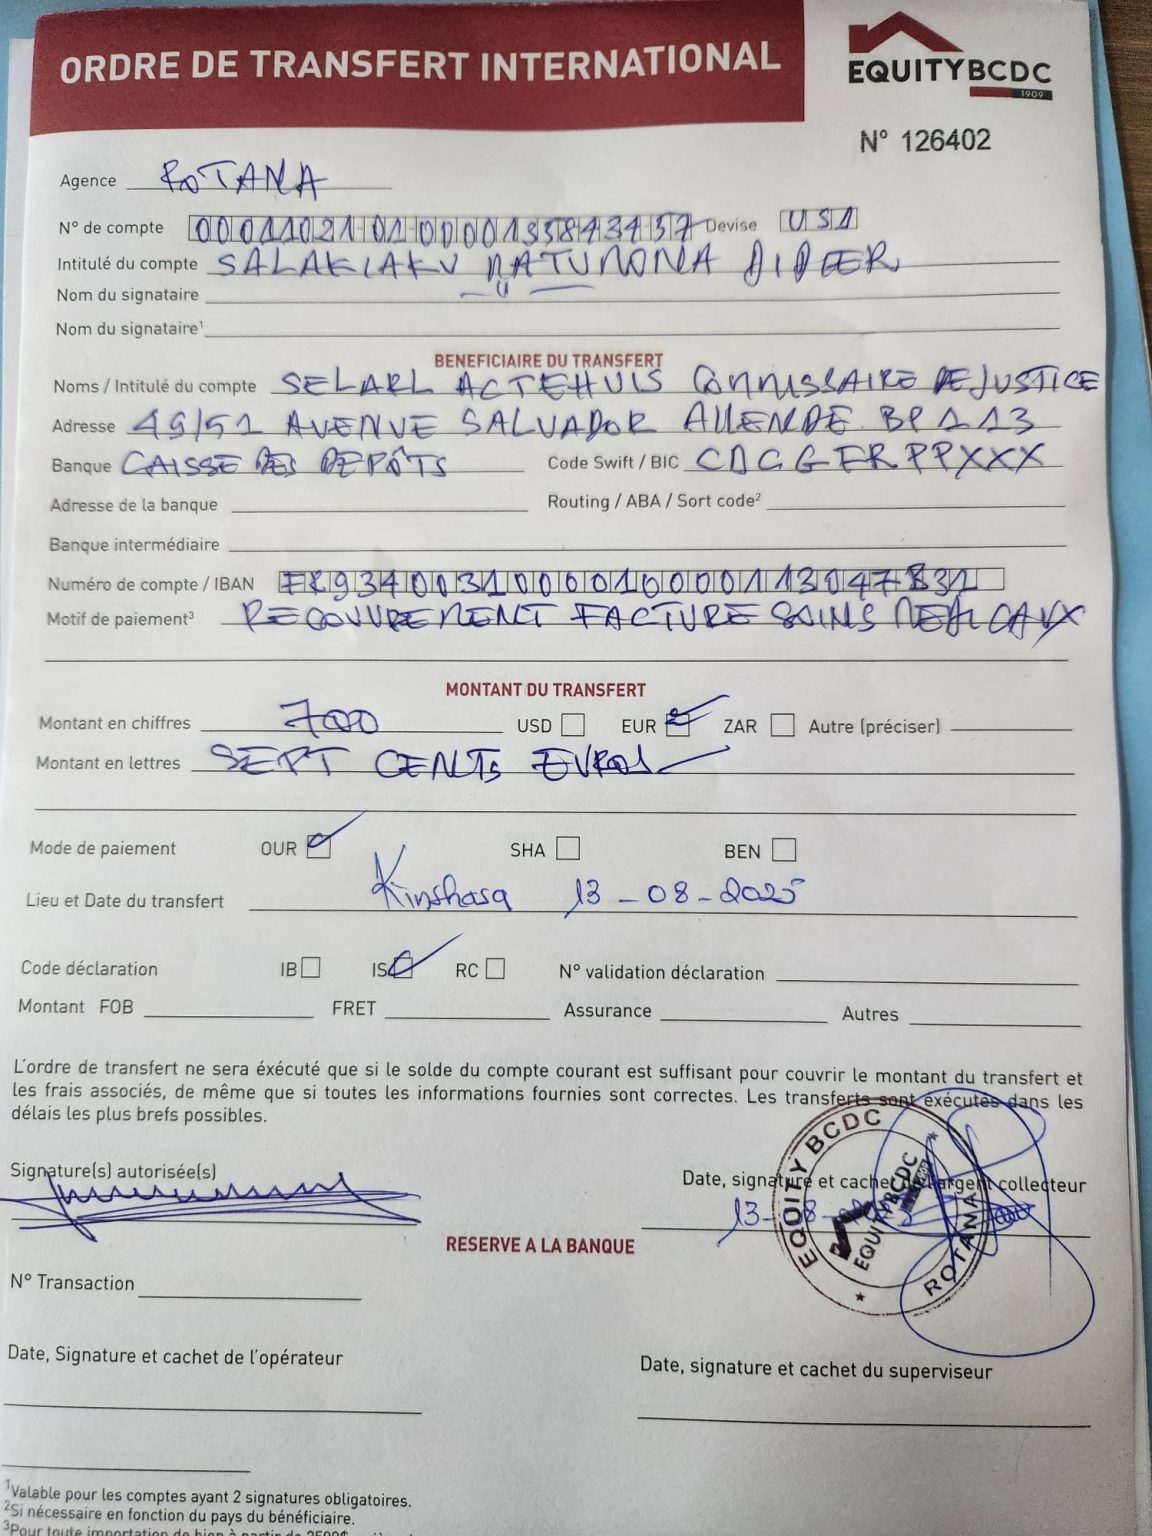 ORDRE DE TRANSFERT INTERNATIONAL
EQUITYBCDC
1909
N° 126402
Agence ROTANA
N° de compte 00011021 01 00001358434 57 Devise USD
Intitulé du compte SALAKIAKU MATUMONA DIDIER
Nom du signataire
Nom du signataire¹
BENEFICIAIRE DU TRANSFERT
Noms / Intitulé du compte SELARL ACTEHUIS COMMISSAIRE DE JUSTICE
Adresse 49/51 AVENUE SALVADOR ALLENDE BP 113
Banque CAISSE DES DEPÔTS Code Swift / BIC CDCGFRPPXXX
Adresse de la banque Routing / ABA / Sort code²
Banque intermédiaire
Numéro de compte / IBAN FR9340031000010000113047 31
Motif de paiement³ RECOUVREMENT FACTURE SOINS MEDICAUX
MONTANT DU TRANSFERT
Montant en chiffres 700 USD EUR ZAR Autre (préciser)
Montant en lettres SEPT CENTS EUROS
Mode de paiement OUR SHA BEN
Lieu et Date du transfert Kinshasa 13-08-2025
Code déclaration IB IS RC N° validation déclaration
Montant FOB FRET Assurance Autres
L'ordre de transfert ne sera éxécuté que si le solde du compte courant est suffisant pour couvrir le montant du transfert et
les frais associés, de même que si toutes les informations fournies sont correctes. Les transferts sont exécutés dans les
délais les plus brefs possibles.
Signature(s) autorisée(s)
Date, signature et cachet de l'argent collecteur
EQUITY BCDC
EQUITYBCDC
ROTANA
RESERVE A LA BANQUE
N° Transaction
Date, Signature et cachet de l'opérateur
Date, signature et cachet du superviseur
¹Valable pour les comptes ayant 2 signatures obligatoires.
²Si nécessaire en fonction du pays du bénéficiaire.
³Pour toute importation de bien à partir de 2500$